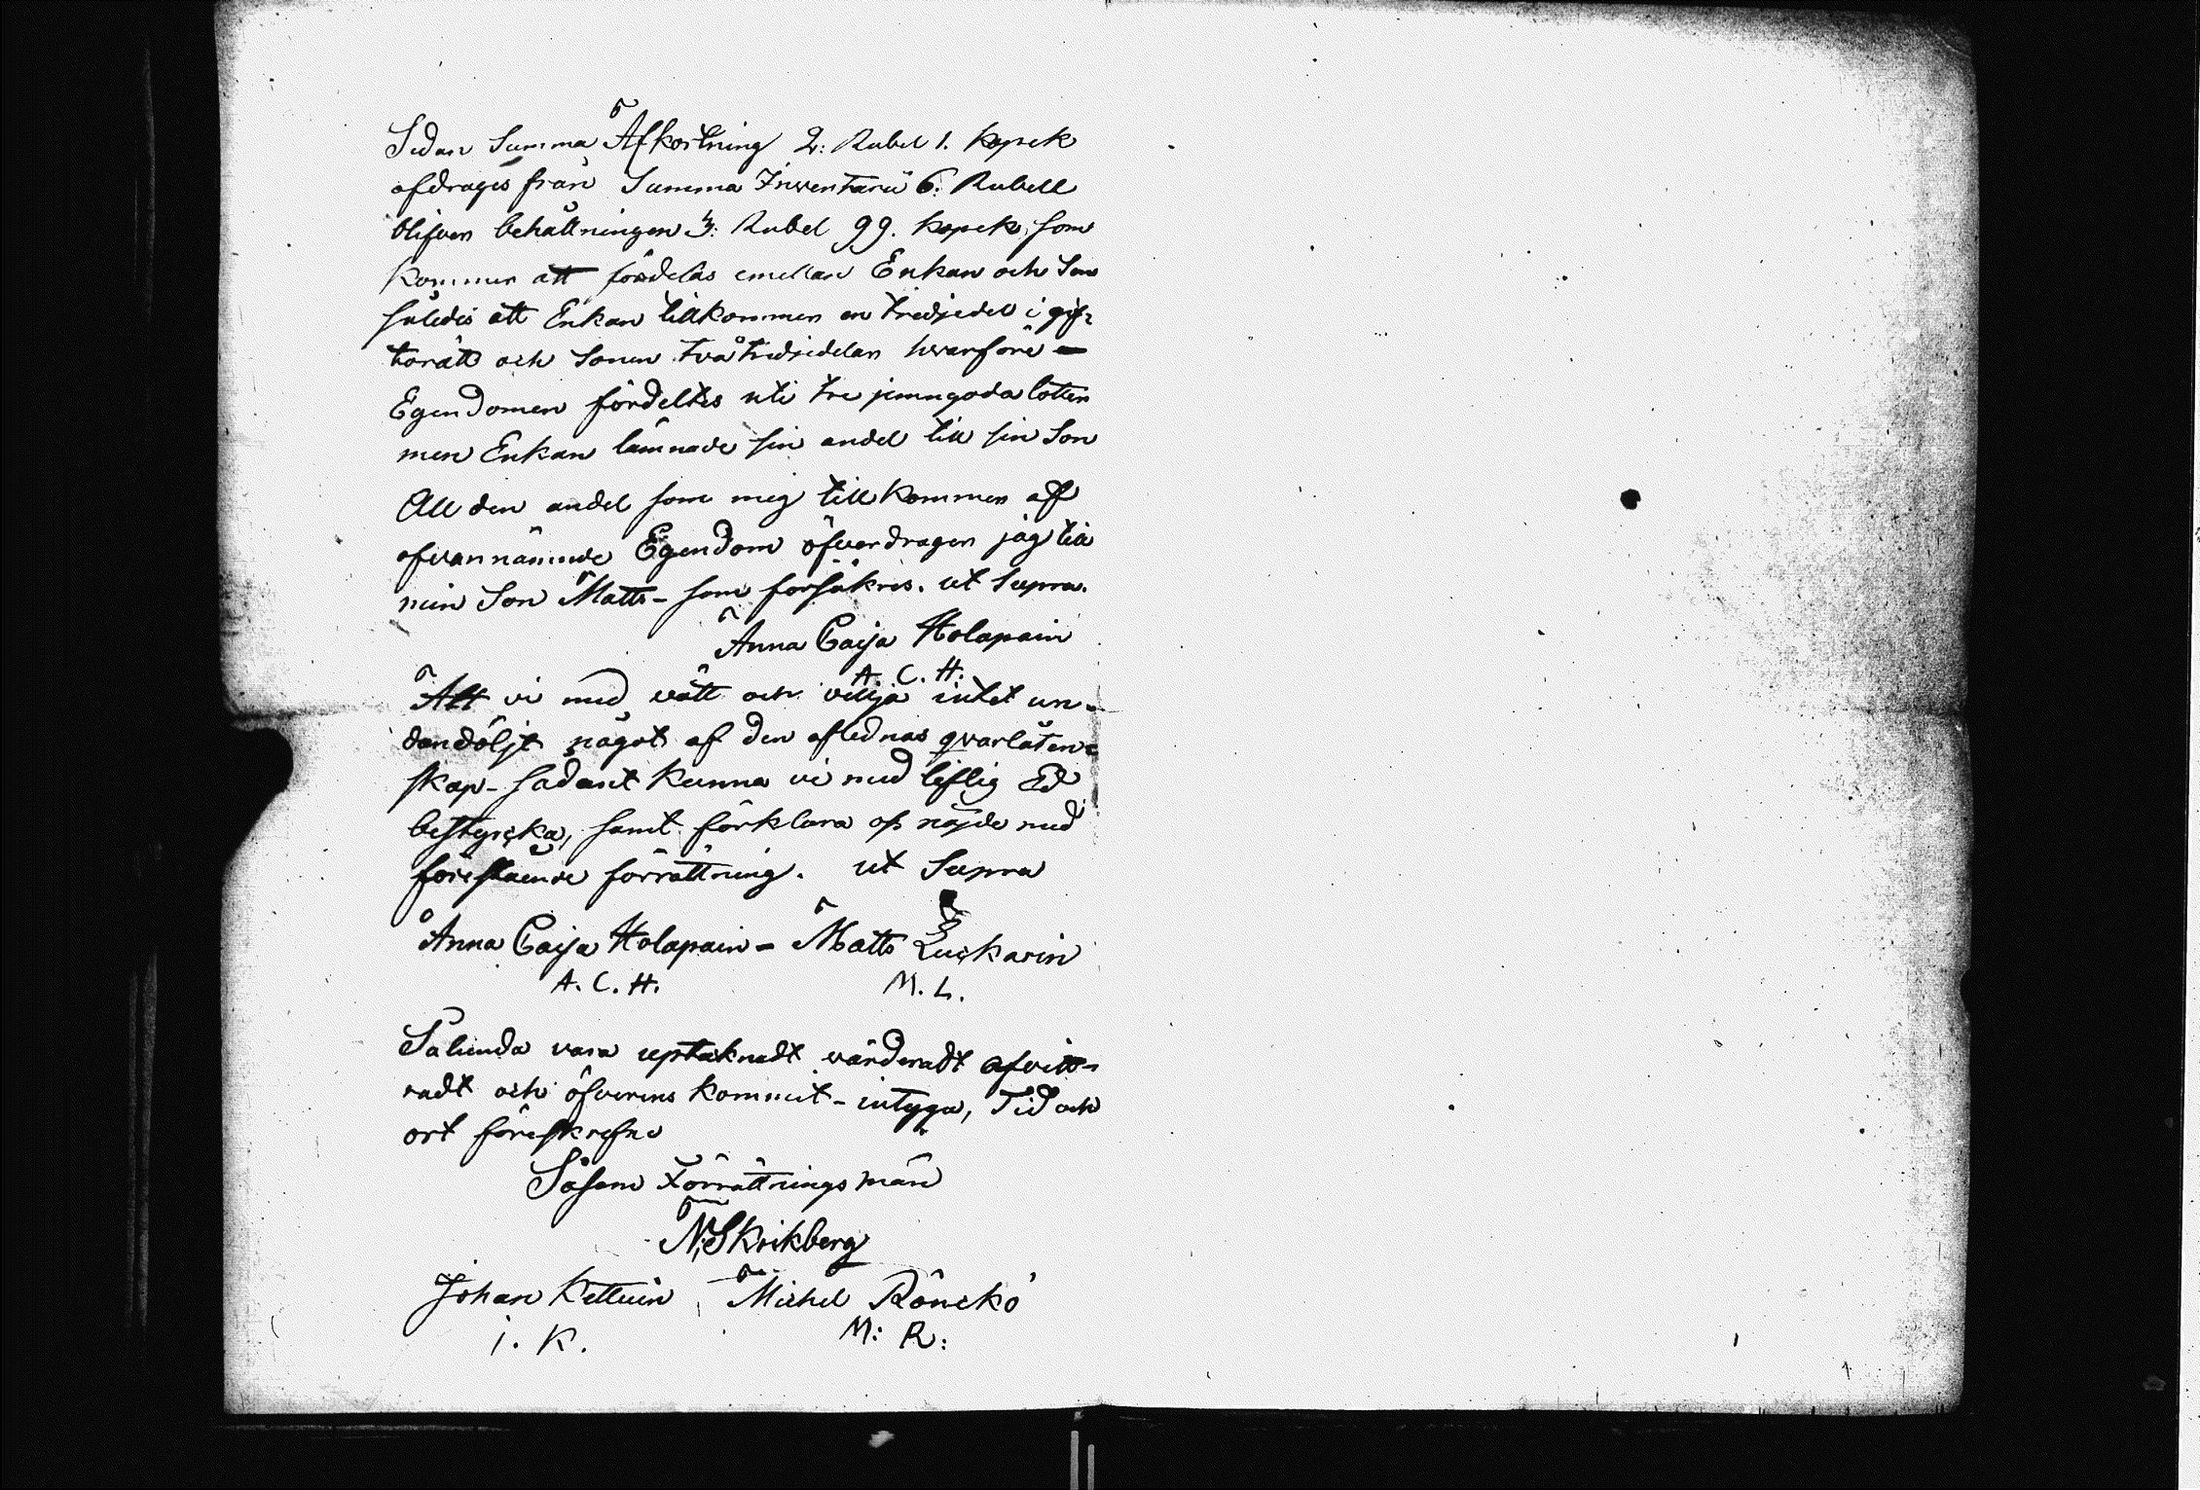 Sedan Summa Afkortning 2: Rubel 1. kopek
afdrages från Summa Inventarii 6: Rubell
blifver behållningen 3: Rubel 99. kopek, som
kommer att fördelas emellan Enkan och Son
således att Enkan tillkommer en tredjedel i gif-
torätt och Sonen två tredjedelar hvarföre -
Egendomen fördeltes uti tre jemngoda lotter
men Enkan lämnade sin andel till sin Son
All den andel som mig tillkommer aff
ofvannämnde Egendom öfverdrager jag till
min Son Matts - som försäkres. ut Supra.
Anna Caija Holapain
A. C. H.
Att vi med vått och vilja intet un-
dandöljt något af den aflednas qvarlåten-
skap - sådant kunna vi med liflig Ed
bestyrcka, samt förklara oss nöjde med
förestående förrättning. ut Supra
Anna Caija Holapain - Matts Luckarin
A. C. H. M. L.
Sålunda vara uptaknadt värderadt afvitt-
radt och öfverens kommit - intyga, Tid och
ort föreskrefne
Såsom Förrättnings män
N. Skrikberg
Johan Kettuin, Michel Rönckö
i. K. M: R: